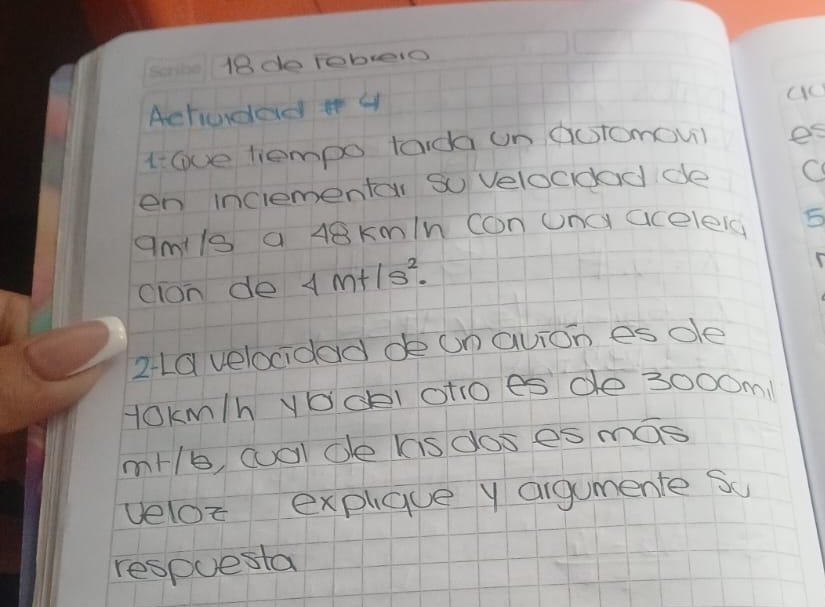 Scribe 18 de Febrero
Actividad # 4
1- Que tiempo tarda un automovil
en incrementar su velocidad de
9mt/s a 48 km/h con una acelera
cion de 1 mt/s².
2- La velocidad de un avión es de
70km/h y la del otro es de 3000 mil
mt/s, cual de las dos es más
veloz explique y argumente su
respuesta
es
5